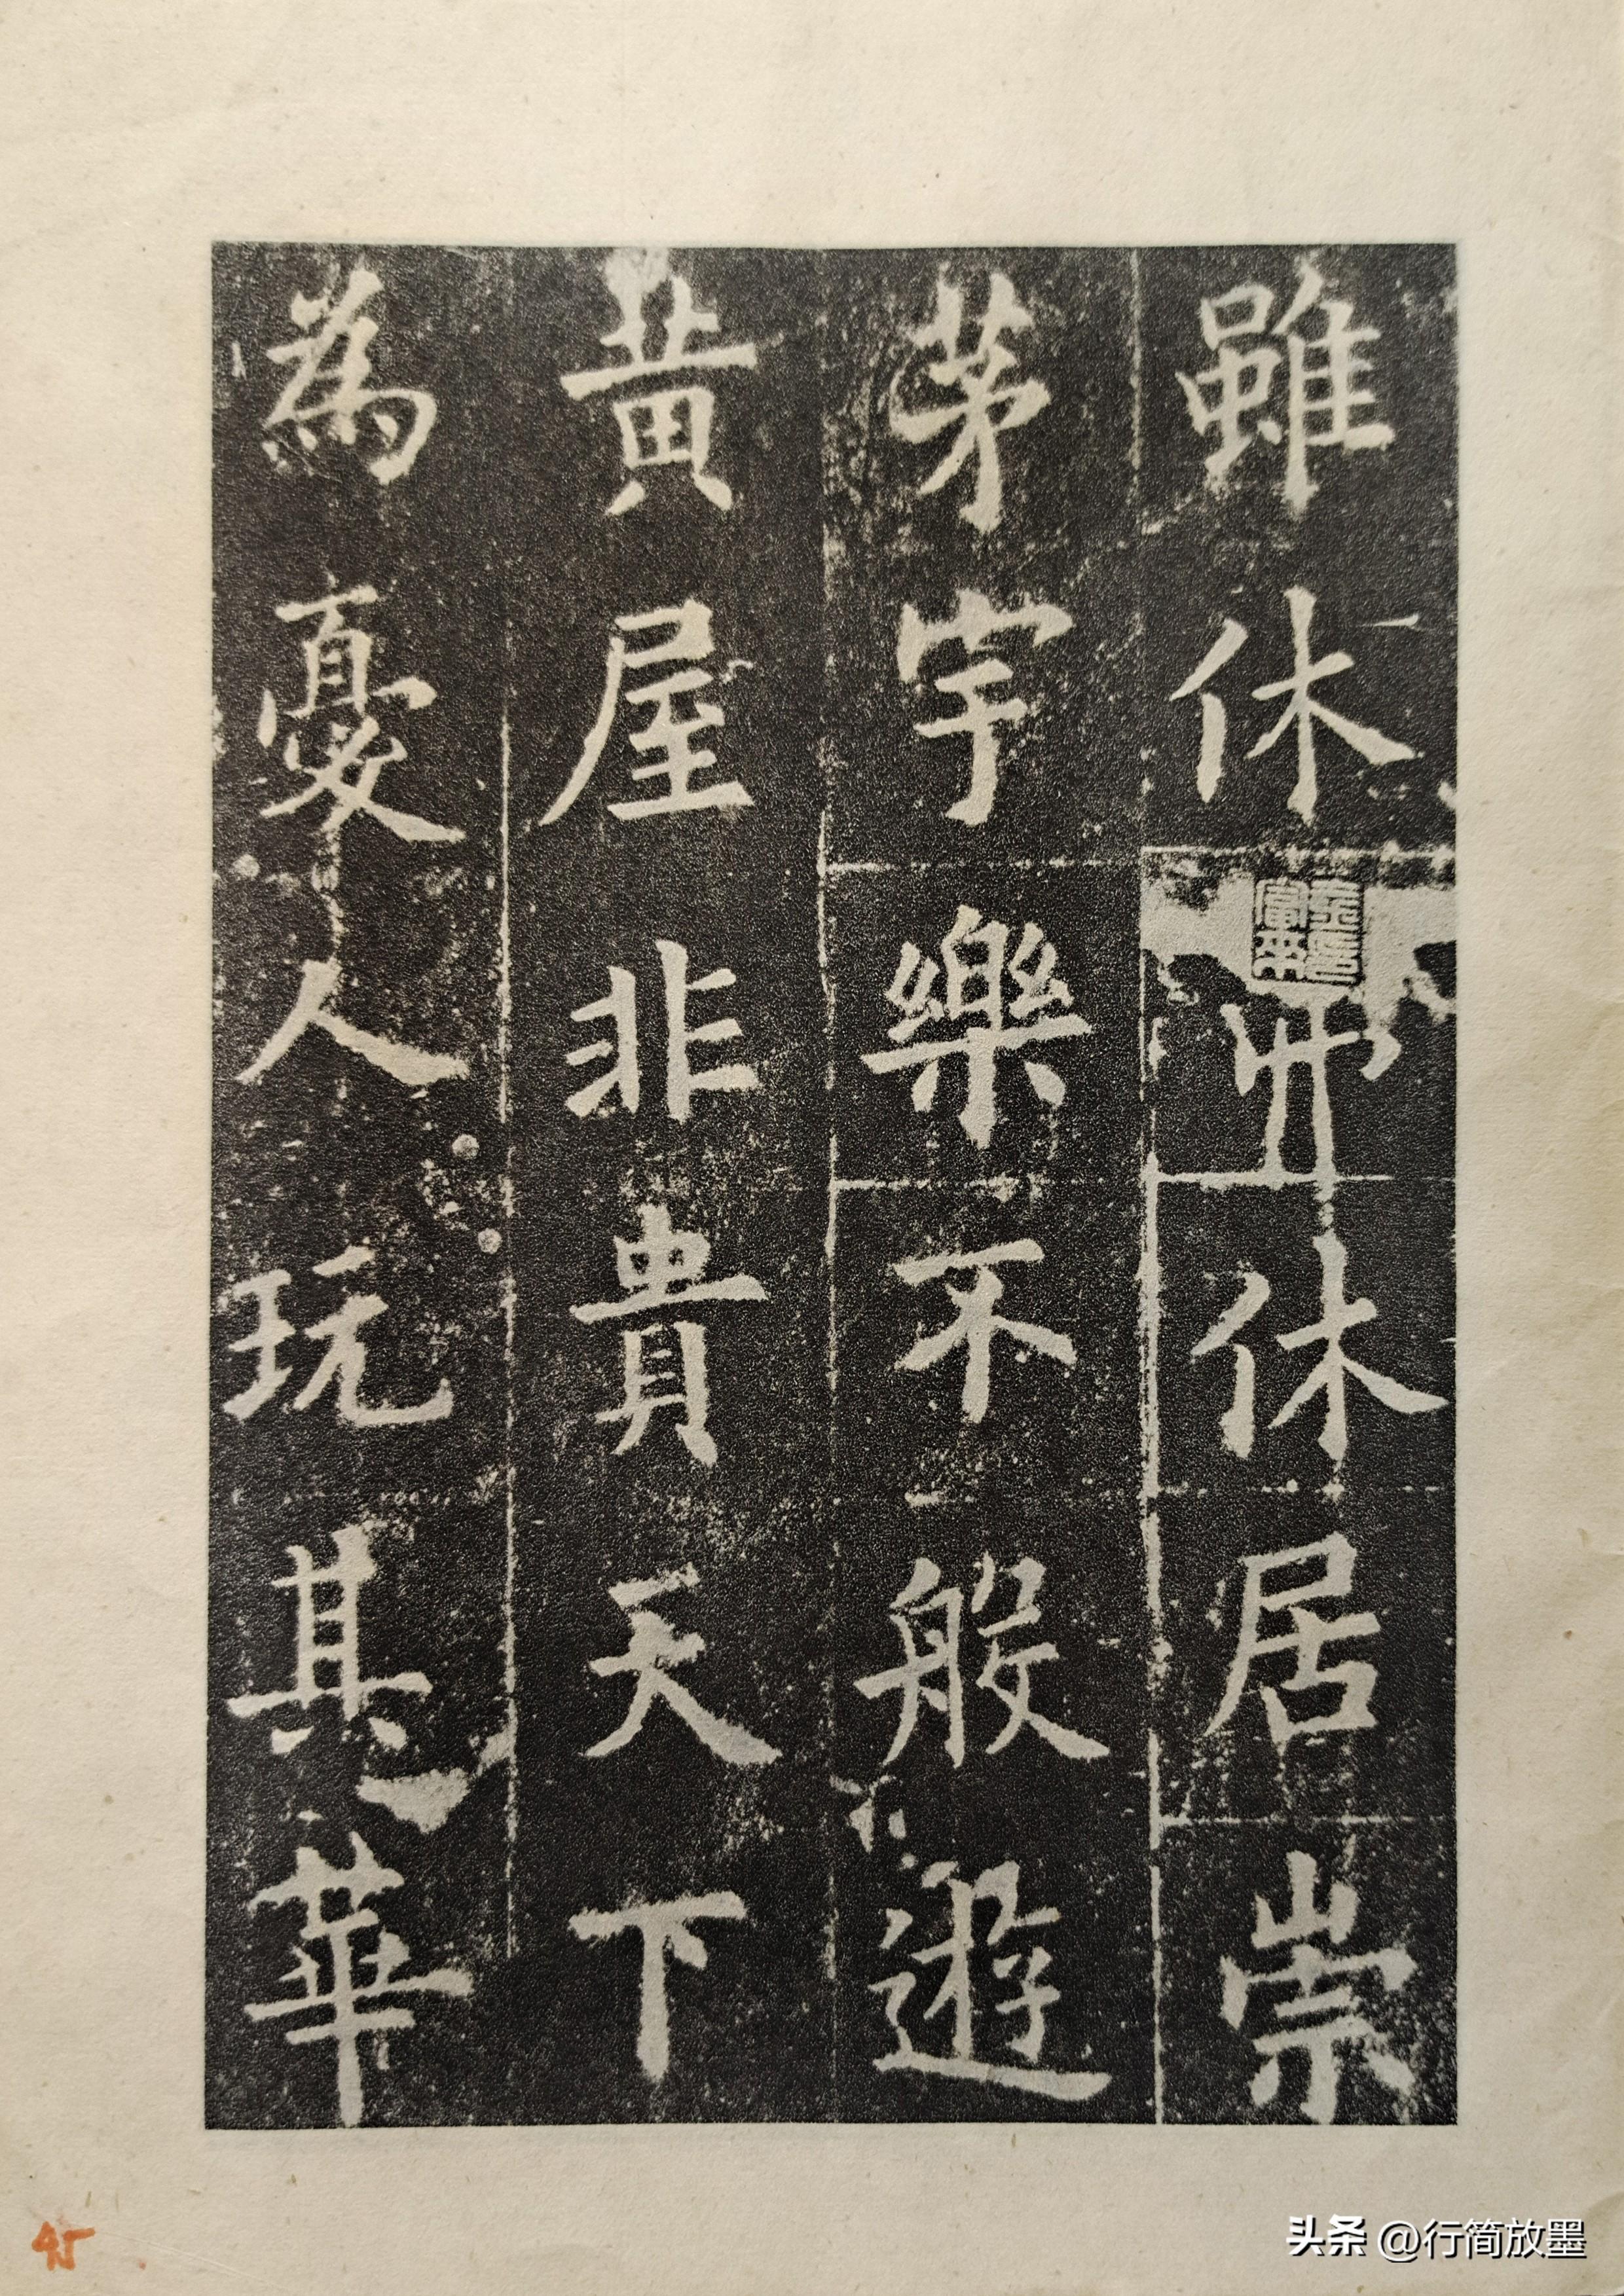 雖休弗休居崇
茅宇樂不般遊
黃屋非貴天下
為憂人玩其華
45
头条 @行简放墨